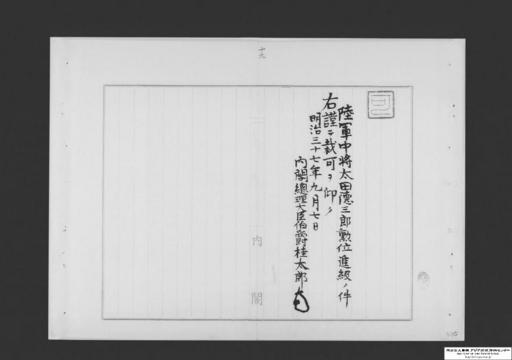 十九
陸軍中将太田徳三郎勲位進級ノ件
右謹テ裁可ヲ仰ク
明治三十七年九月七日
内閣総理大臣伯爵桂太郎
内閣